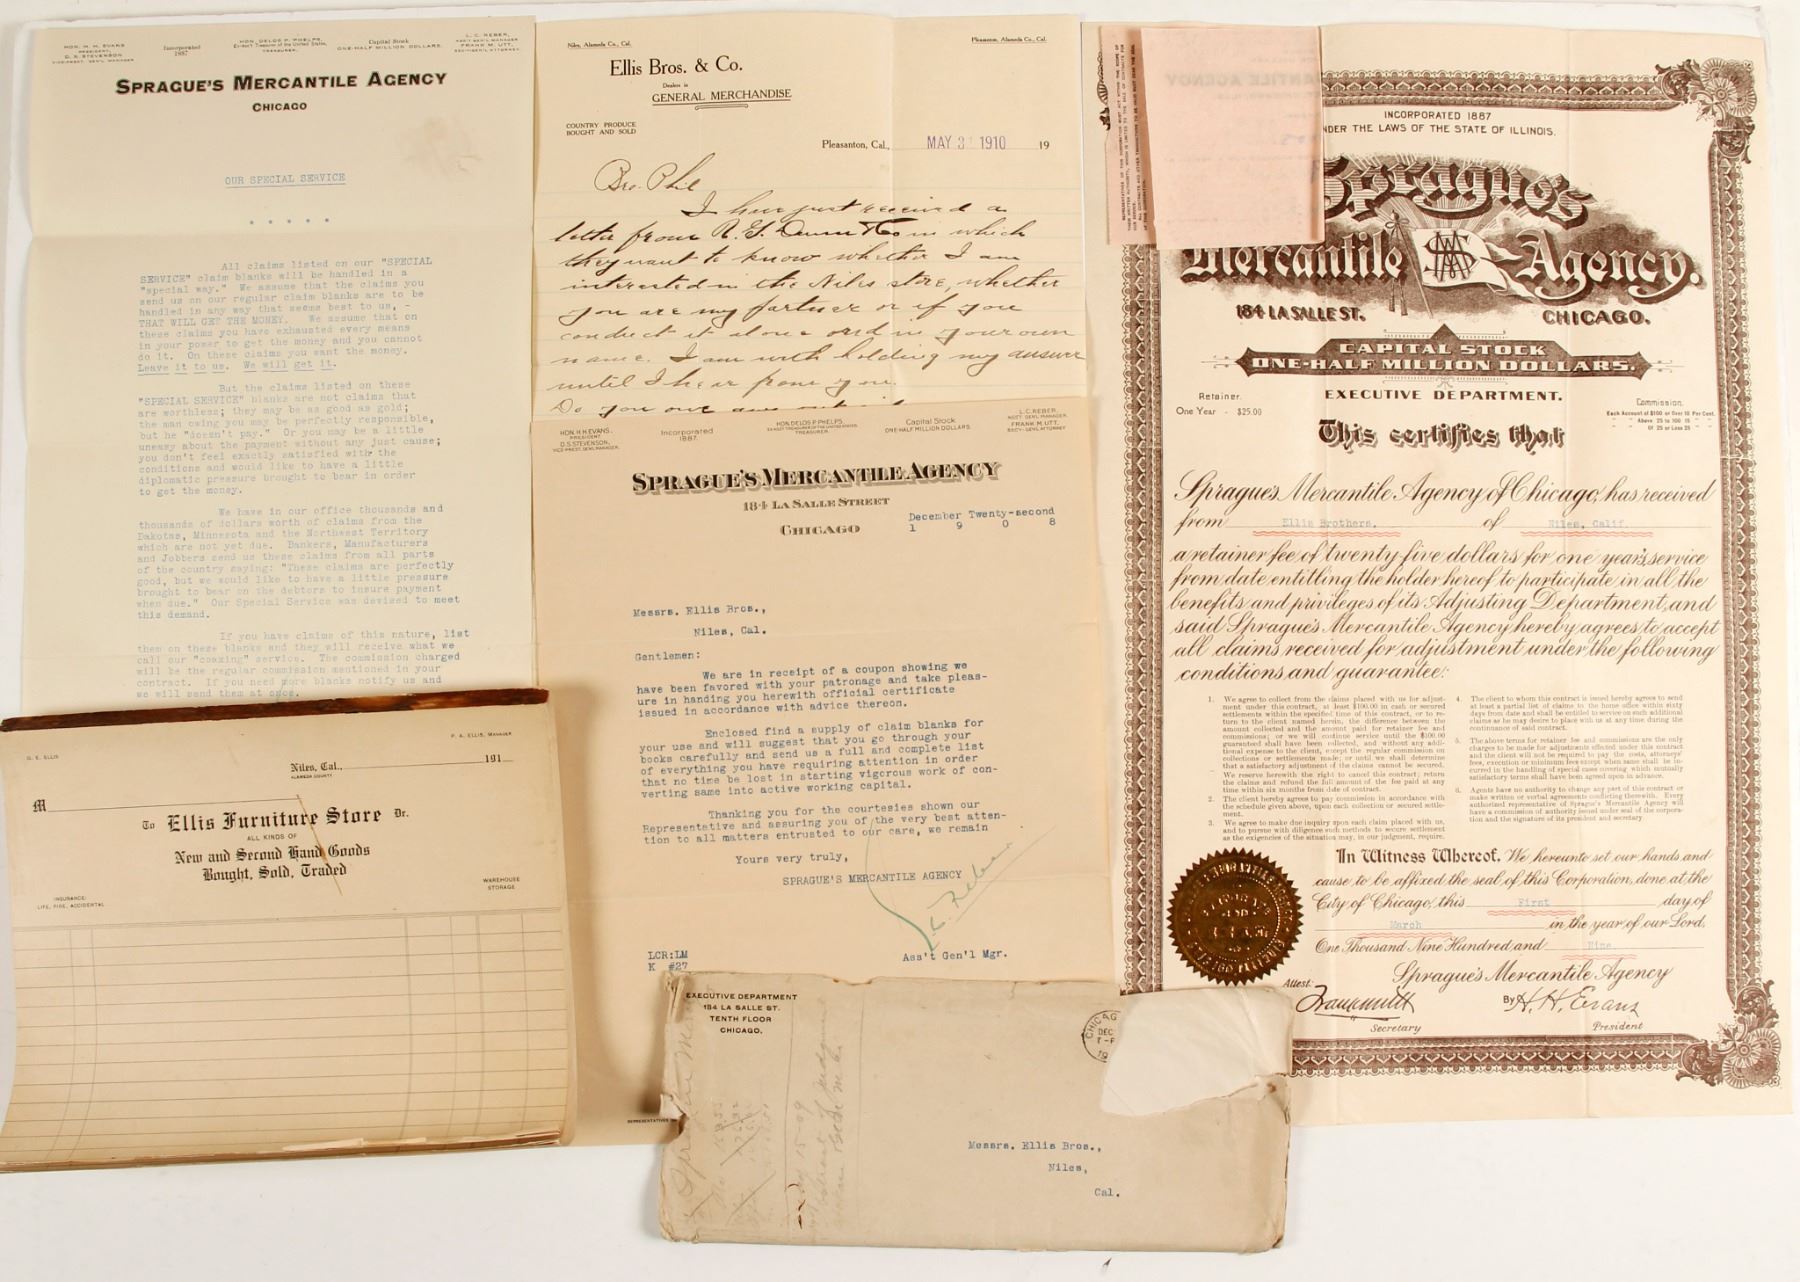 HON. H. H. EVANS
PRESIDENT,
D. S. STEVENSON
VICE-PREST. GEN'L MANAGER
Incorporated
1887
HON. DELOS P. PHELPS,
Ex-Ass't Treasurer of the United States,
TREASURER.
Capital Stock
ONE-HALF MILLION DOLLARS.
L. C. REBER,
ASS'T GEN'L MANAGER
FRANK M. UTT,
SEC'Y-GEN'L ATTORNEY.
SPRAGUE'S MERCANTILE AGENCY
CHICAGO
OUR SPECIAL SERVICE
* * * * *
All claims listed on our "SPECIAL
SERVICE" claim blanks will be handled in a
"special way." We assume that the claims you
send us on our regular claim blanks are to be
handled in any way that seems best to us, -
THAT WILL GET THE MONEY. We assume that on
these claims you have exhausted every means
in your power to get the money and you cannot
do it. On these claims you want the money.
Leave it to us. We will get it.
But the claims listed on these
"SPECIAL SERVICE" blanks are not claims that
are worthless; they may be as good as gold;
the man owing you may be perfectly responsible,
but he "doesn't pay." Or you may be a little
uneasy about the payment without any just cause;
you don't feel exactly satisfied with the
conditions and would like to have a little
diplomatic pressure brought to bear in order
to get the money.
We have in our office thousands and
thousands of dollars worth of claims from the
Dakotas, Minnesota and the Northwest Territory
which are not yet due. Bankers, Manufacturers
and Jobbers send us these claims from all parts
of the country saying: "These claims are perfectly
good, but we would like to have a little pressure
brought to bear on the debtors to insure payment
when due." Our Special Service was devised to meet
this demand.
If you have claims of this nature, list
them on these blanks and they will receive what we
call our "coaxing" service. The commission charged
will be the regular commission mentioned in your
contract. If you need more blanks notify us and
we will send them at once.
Niles, Alameda Co., Cal.
Pleasanton, Alameda Co., Cal.
Ellis Bros. & Co.
Dealers in
GENERAL MERCHANDISE
COUNTRY PRODUCE
BOUGHT AND SOLD
Pleasanton, Cal., MAY 31 1910 19
Bro. Phil
I have just received a
letter from R. G. Dunn & Co in which
they want to know whether I am
interested in the Niles store, whether
you are my partner or if you
conduct it alone and in your own
name. I am with holding my answer
until I hear from you.
Do you owe
HON. H. H. EVANS,
PRESIDENT
D. S. STEVENSON,
VICE-PREST. GEN'L MANAGER.
Incorporated
1887.
HON. DELOS P. PHELPS,
TREASURER
Capital Stock
ONE-HALF MILLION DOLLARS
L. C. REBER,
ASS'T GEN'L MANAGER.
FRANK M. UTT,
SEC'Y-GEN'L ATTORNEY
SPRAGUE'S MERCANTILE AGENCY
184 LA SALLE STREET
CHICAGO
December Twenty-second
1 9 0 8
Messrs. Ellis Bros.,
Niles, Cal.
Gentlemen:
We are in receipt of a coupon showing we
have been favored with your patronage and take pleas-
ure in handing you herewith official certificate
issued in accordance with advice thereon.
Enclosed find a supply of claim blanks for
your use and will suggest that you go through your
books carefully and send us a full and complete list
of everything you have requiring attention in order
that no time be lost in starting vigorous work of con-
verting same into active working capital.
Thanking you for the courtesies shown our
Representative and assuring you of the very best atten-
tion to all matters entrusted to our care, we remain
Yours very truly,
SPRAGUE'S MERCANTILE AGENCY
L. C. Reber
LCR:LM
K #27
Ass't Gen'l Mgr.
REPRESENTATIVES
INCORPORATED 1887
NDER THE LAWS OF THE STATE OF ILLINOIS.
Sprague's
Mercantile Agency.
184 LA SALLE ST. CHICAGO.
CAPITAL STOCK
ONE-HALF MILLION DOLLARS.
EXECUTIVE DEPARTMENT.
Retainer.
One Year - $25.00
Commission.
Each Account of $100 or Over 10 Per Cent.
" Above 25 to 100 15 "
Of 25 or Less 25 "
This certifies that
Sprague's Mercantile Agency of Chicago, has received
from Ellis Brothers. of Niles, Calif.
a retainer fee of twenty-five dollars for one year's service
from date entitling the holder hereof to participate in all the
benefits and privileges of its Adjusting Department, and
said Sprague's Mercantile Agency hereby agrees to accept
all claims received for adjustment under the following
conditions and guarantee:
1. We agree to collect from the claims placed with us for adjust-
ment under this contract, at least $100.00 in cash or secured
settlements within the specified time of this contract, or to re-
turn to the client named herein, the difference between the
amount collected and the amount paid for retainer fee and
commissions; or we will continue service until the $100.00
guaranteed shall have been collected, and without any addi-
tional expense to the client, except the regular commission on
collections or settlements made; or until we shall determine
that a satisfactory adjustment of the claims cannot be secured.
We reserve herewith the right to cancel this contract; return
the claims and refund the full amount of the fee paid at any
time within six months from date of contract.
2. The client hereby agrees to pay commission in accordance with
the schedule given above, upon each collection or secured settle-
ment.
3. We agree to make due inquiry upon each claim placed with us,
and to pursue with diligence such methods to secure settlement
as the exigencies of the situation may, in our judgment, require.
4. The client to whom this contract is issued hereby agrees to send
at least a partial list of claims to the home office within sixty
days from date and shall be entitled to service on such additional
claims as he may desire to place with us at any time during the
continuance of said contract.
5. The above terms for retainer fee and commissions are the only
charges to be made for adjustments effected under this contract
and the client will not be required to pay the costs, attorneys'
fees, execution or minimum fees except when same shall be in-
curred in the handling of special cases covering which mutually
satisfactory terms shall have been agreed upon in advance.
6. Agents have no authority to change any part of this contract or
make written or verbal agreements conflicting therewith. Every
authorized representative of Sprague's Mercantile Agency will
have a commission of authority issued under seal of the corpora-
tion and the signature of its president and secretary
In Witness Whereof, We hereunto set our hands and
cause to be affixed the seal of this Corporation, done at the
City of Chicago, this First day of
March in the year of our Lord,
One Thousand Nine Hundred and Nine.
Sprague's Mercantile Agency
Attest: Frank M Utt By H. H. Evans
Secretary President
O. E. ELLIS
P. A. ELLIS, MANAGER
Niles, Cal., 191
ALAMEDA COUNTY
M
To Ellis Furniture Store Dr.
ALL KINDS OF
New and Second Hand Goods
Bought, Sold, Traded
INSURANCE:
LIFE, FIRE, ACCIDENTAL
WAREHOUSE
STORAGE
EXECUTIVE DEPARTMENT
184 LA SALLE ST.
TENTH FLOOR
CHICAGO.
CHICAGO
DEC
Messrs. Ellis Bros.,
Niles,
Cal.